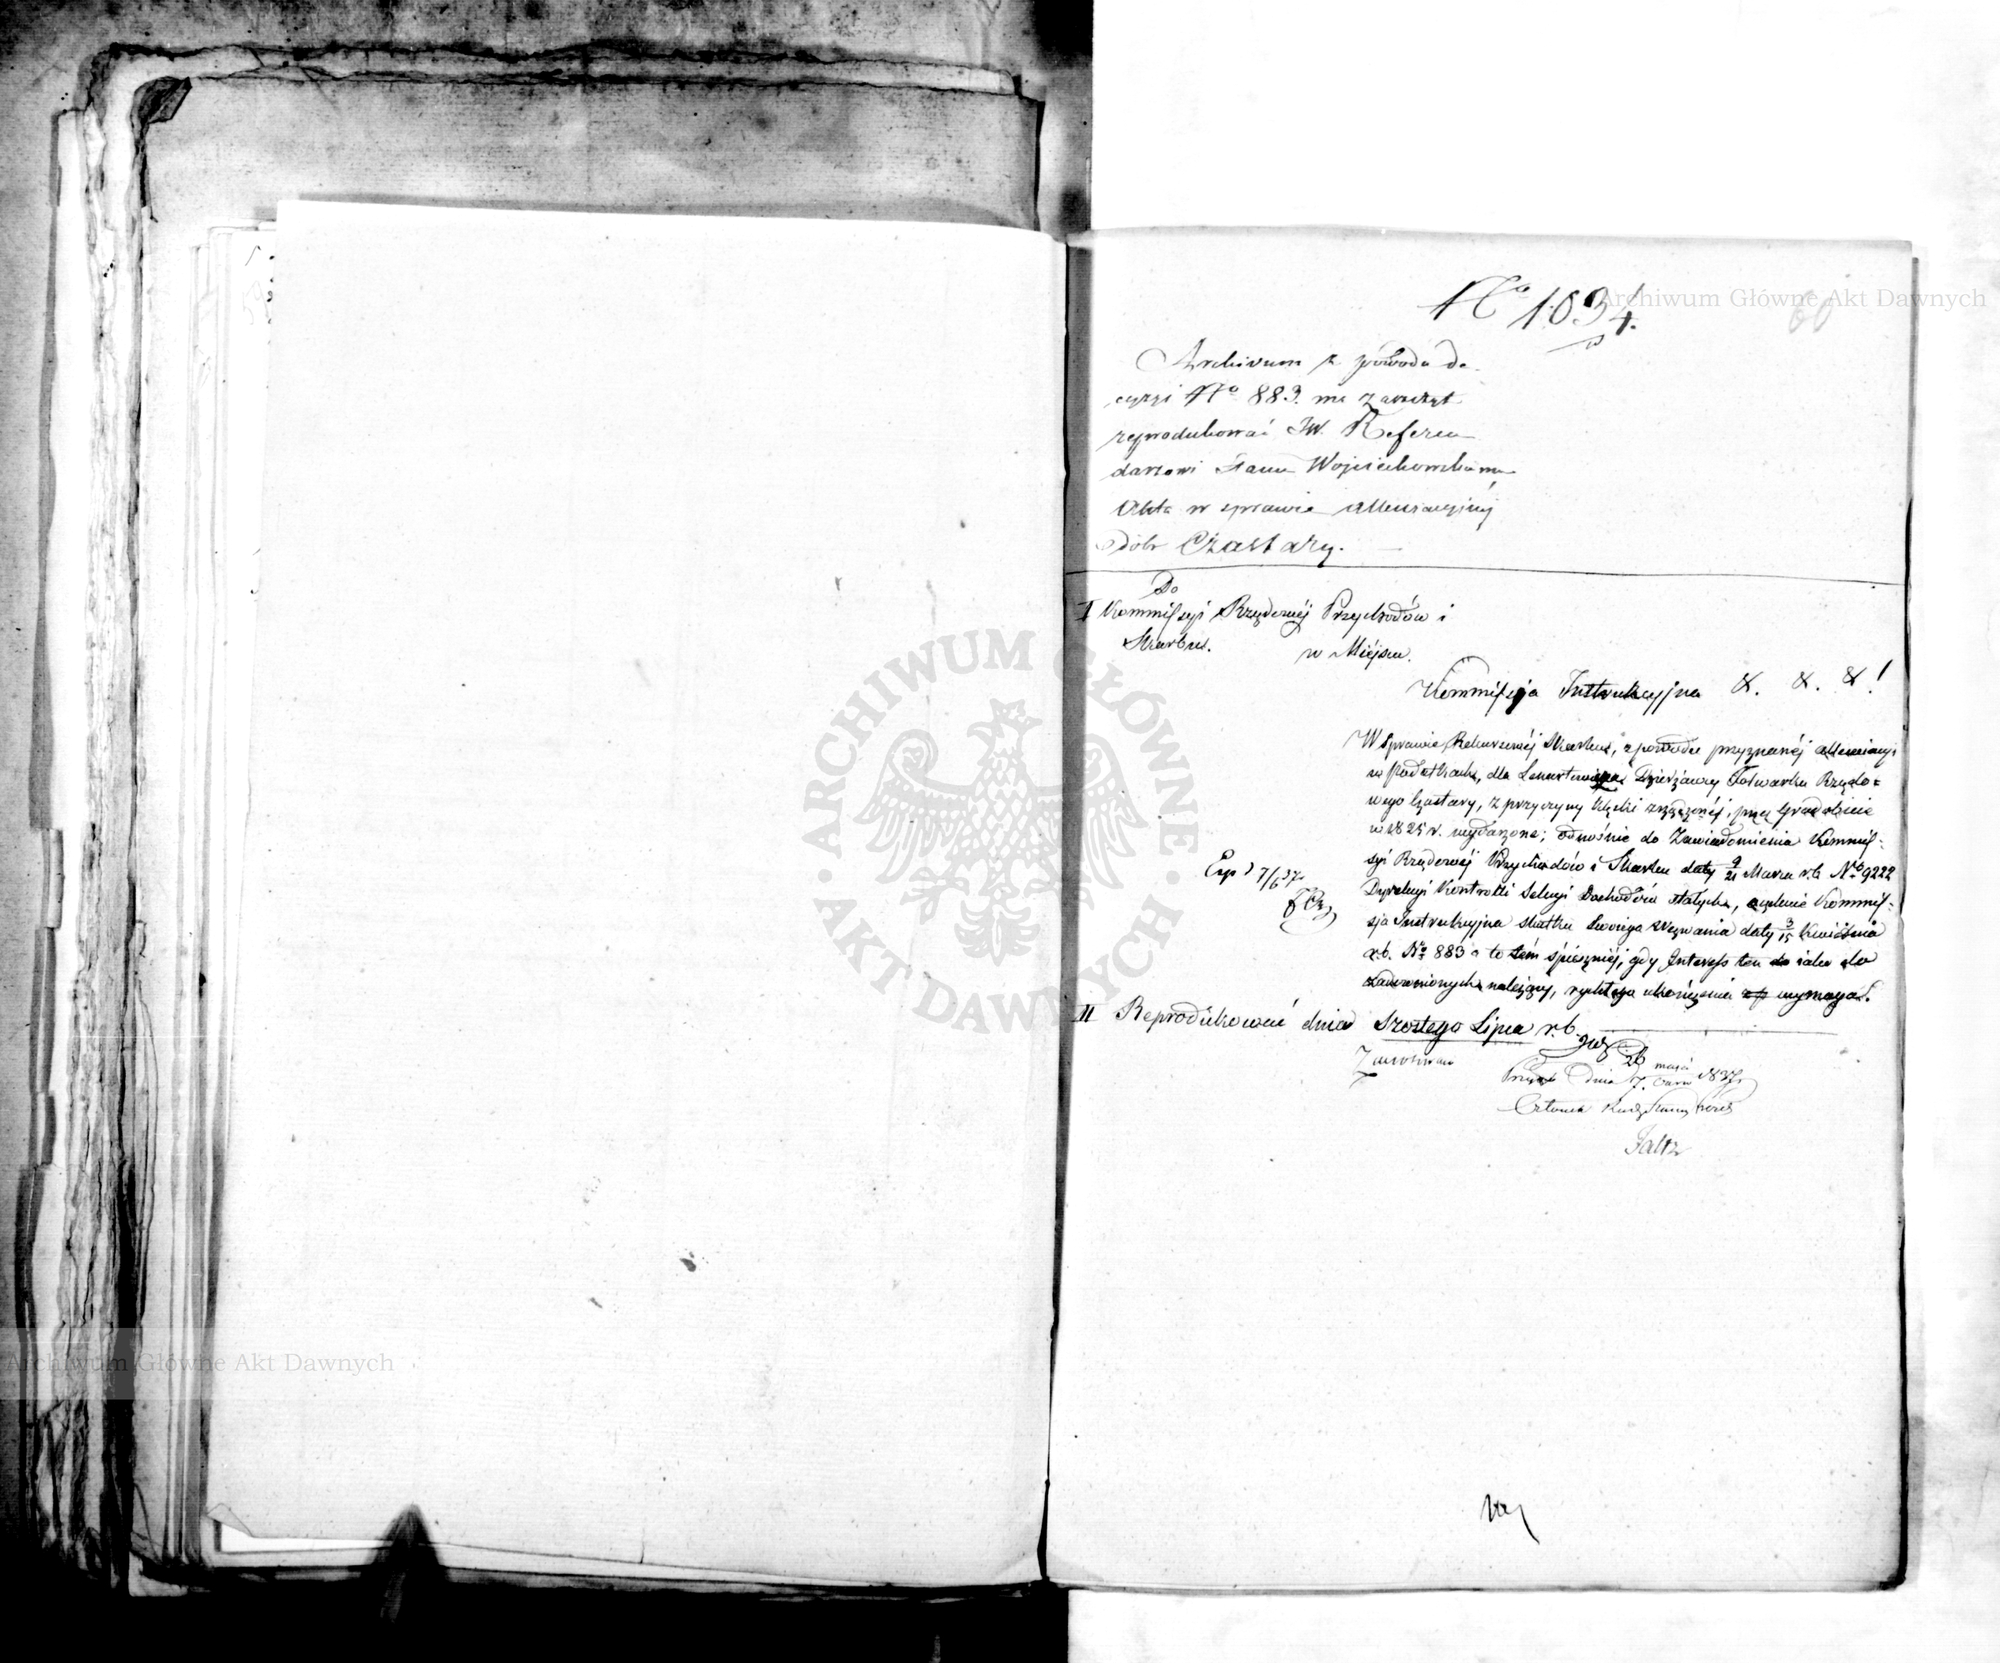 No 1034.
60
Archivum z powodu de-
cyzyi No 883. ma zaszczyt
reprodukować JW. Referen-
darzowi Stanu Wojciechowskiemu
Akta w sprawie allewiacyjnej
dóbr Czastary.
Do
I Kommissyi Rządowéj Przychodów i
Skarbu.
w Miéjscu.
Kommissyja Instrukcyjna &. &. &!
W sprawie Rekursowéj Skarbu, z powodu przyznanéj allewiacyi
w podatkach, dla Dzierżawcy Folwarku Rządo=
wego Czastary, z przyczyny klęski zrządzonéj, przez Gradobicie
w 1825 r. wydarzone; odnośnie do Zawiadomienia Kommis-
syi Rządowéj Przychodów i Skarbu daty 9/21 Marca r.b. No 9222
Dyrekcyi Kontrolli Sekcyi Dochodów stałych, Kommis-
sja Instrukcyjna skutku Swoiego Wezwania daty 3/15 Kwiétnia
r.b. No 883 a to tém śpieszniéj, gdy Interess ten iako do
zadawnionych należący, ukończenia wymaga.
Exp d 7/6 37.
II Reprodukować dnia Szóstego Lipca r.b.
Dnia 26 maja / 7. Czerw 1837
Członek
Faltz
ARCHIWUM GŁÓWNE AKT DAWNYCH
Archiwum Główne Akt Dawnych
Archiwum Główne Akt Dawnych